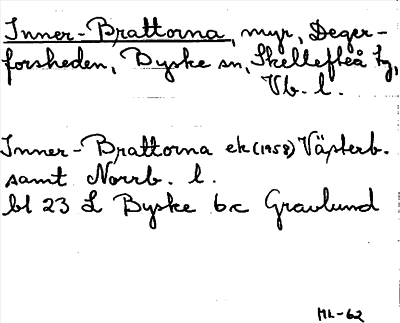 Inner-Brattorna, myr, Deger-
forsheden, Byske sn, Skellefteå tg,
Vb. l.
Inner-Brattorna ek (1958) Västerb.
samt Norrb. l.
bl 23 L Byske b-c Gravlund
HL-62